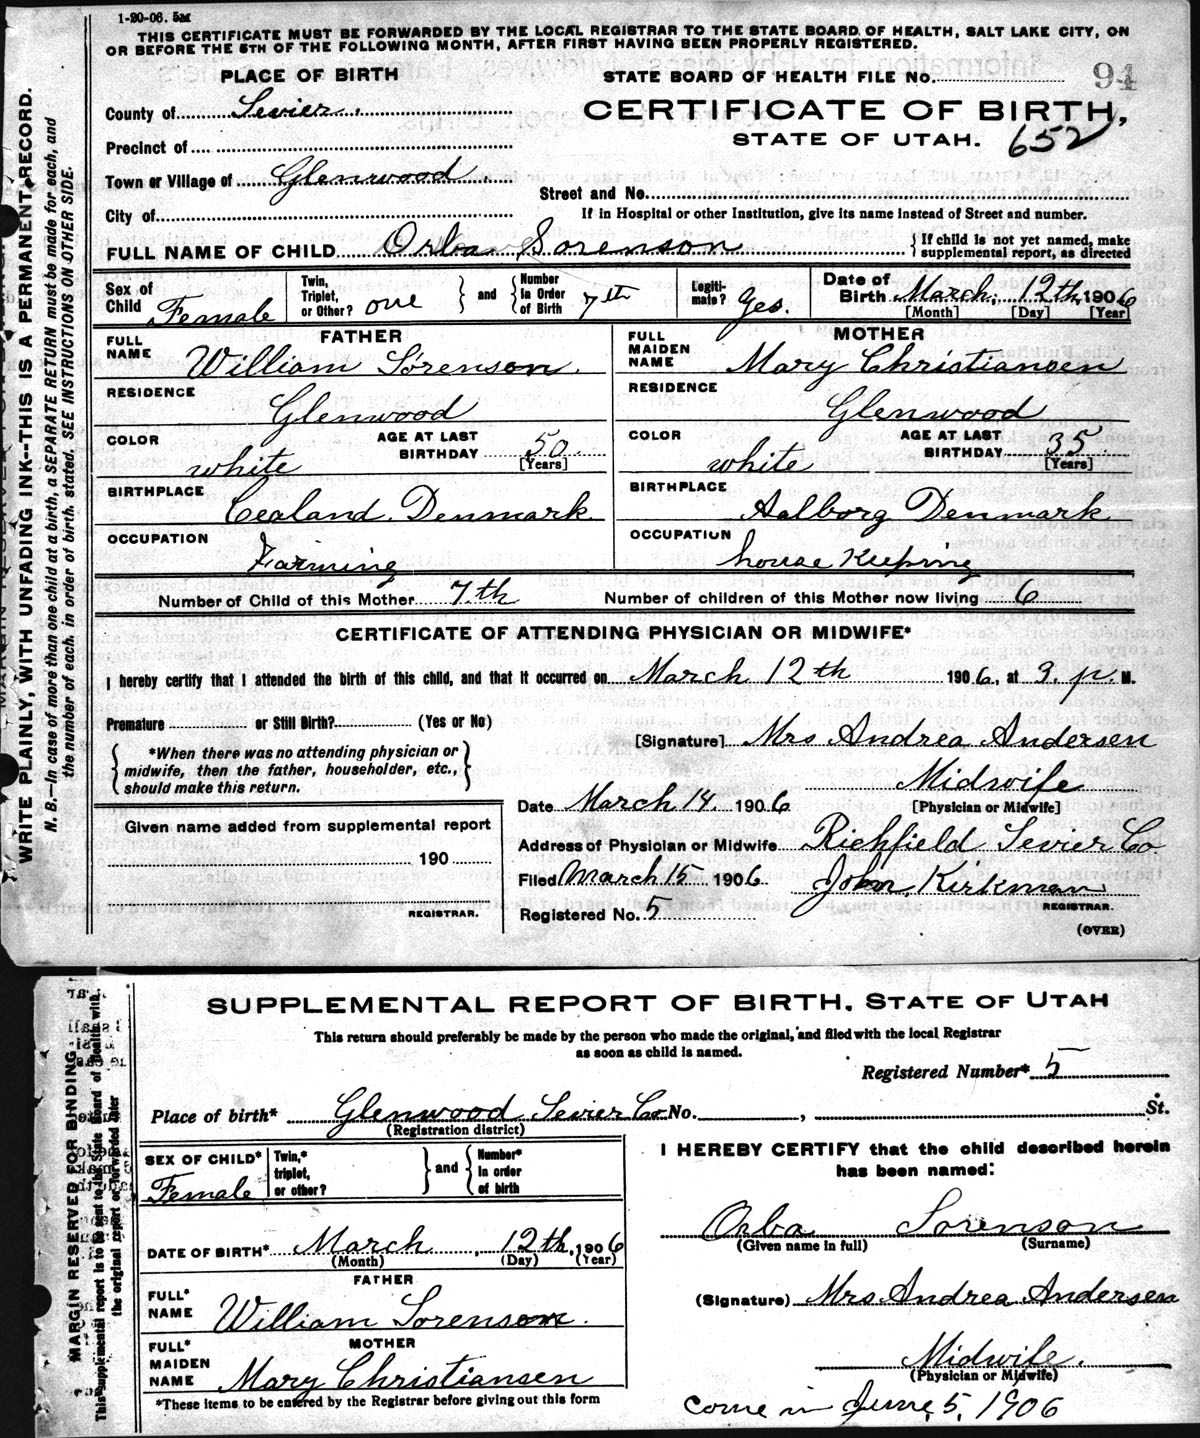 1-20-06. 5M
THIS CERTIFICATE MUST BE FORWARDED BY THE LOCAL REGISTRAR TO THE STATE BOARD OF HEALTH, SALT LAKE CITY, ON
OR BEFORE THE 5TH OF THE FOLLOWING MONTH, AFTER FIRST HAVING BEEN PROPERLY REGISTERED.
PLACE OF BIRTH
STATE BOARD OF HEALTH FILE No. 94
County of Sevier.
CERTIFICATE OF BIRTH,
Precinct of
STATE OF UTAH. 652
Town or Village of Glenwood
Street and No.
City of
If in Hospital or other Institution, give its name instead of Street and number.
FULL NAME OF CHILD Orba Sorenson { If child is not yet named, make
supplemental report, as directed
Sex of Child Female
Twin, Triplet, or Other? one } and { Number In Order of Birth 7th
Legiti-mate? Yes.
Date of Birth March. 12th, 1906
[Month] [Day] [Year]
FATHER
FULL NAME William Sorenson.
RESIDENCE
Glenwood
COLOR white
AGE AT LAST BIRTHDAY 50
[Years]
BIRTHPLACE
Cealand. Denmark
OCCUPATION
Farming
MOTHER
FULL MAIDEN NAME Mary Christiansen
RESIDENCE
Glenwood
COLOR white
AGE AT LAST BIRTHDAY 35
[Years]
BIRTHPLACE
Aalborg Denmark
OCCUPATION
house Keeping
Number of Child of this Mother 7th Number of children of this Mother now living 6
CERTIFICATE OF ATTENDING PHYSICIAN OR MIDWIFE*
I hereby certify that I attended the birth of this child, and that it occurred on March 12th 1906, at 3. p. M.
Premature or Still Birth? (Yes or No)
{ *When there was no attending physician or
midwife, then the father, householder, etc.,
should make this return. }
[Signature] Mrs Andrea Andersen
Midwife
[Physician or Midwife]
Date March 14 1906
Given name added from supplemental report
190
REGISTRAR.
Address of Physician or Midwife Richfield Sevier Co.
Filed March 15 1906 John Kirkman
REGISTRAR.
Registered No. 5
(OVER)
WRITE PLAINLY, WITH UNFADING INK--THIS IS A PERMANENT RECORD.
N. B.—In case of more than one child at a birth, a SEPARATE RETURN must be made for each, and
the number of each, in order of birth, stated. SEE INSTRUCTIONS ON OTHER SIDE.
SUPPLEMENTAL REPORT OF BIRTH, STATE OF UTAH
This return should preferably be made by the person who made the original, and filed with the local Registrar
as soon as child is named.
Registered Number* 5
Place of birth* Glenwood Sevier Co. No. , St.
(Registration district)
SEX OF CHILD* Female
Twin,* triplet, or other? } and { Number* in order of birth
DATE OF BIRTH* March, 12th, 1906
(Month) (Day) (Year)
FATHER
FULL* NAME William Sorenson.
MOTHER
FULL* MAIDEN NAME Mary Christiansen
*These items to be entered by the Registrar before giving out this form
I HEREBY CERTIFY that the child described herein
has been named:
Orba Sorenson
(Given name in full) (Surname)
(Signature) Mrs Andrea Andersen
Midwife.
(Physician or Midwife)
come in June, 5, 1906
MARGIN RESERVED FOR BINDING
This supplemental report is to be sent to the State Board of Health with
the original report or forwarded later